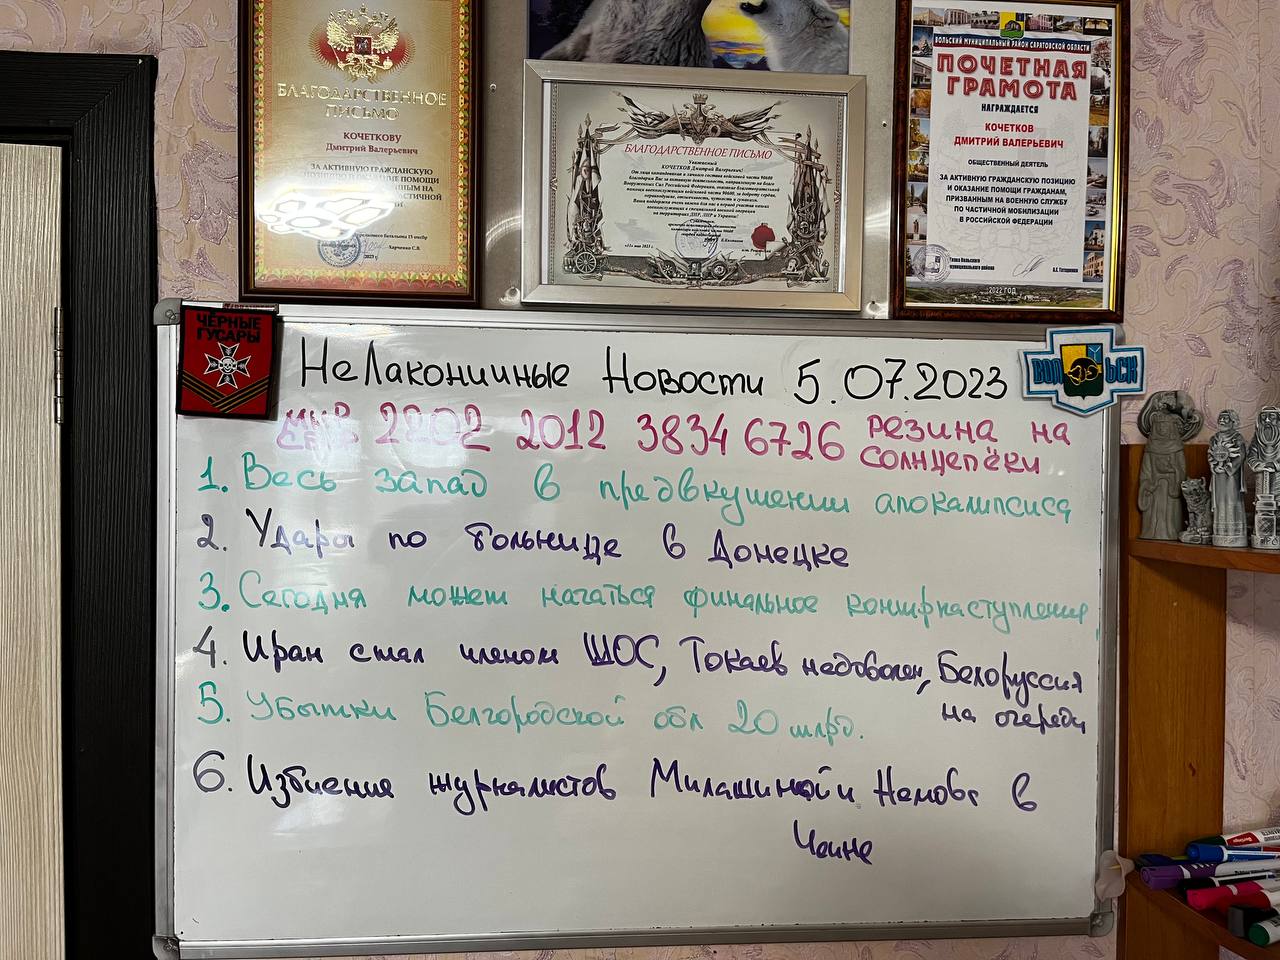 БЛАГОДАРСТВЕННОЕ
ПИСЬМО
КОЧЕТКОВУ
Дмитрий Валерьевич
ЗА АКТИВНУЮ ГРАЖДАНСКУЮ
БЛАГОДАРСТВЕННОЕ ПИСЬМО
Уважаемый
КОЧЕТКОВ Дмитрий Валерьевич!
От лица командования и личного состава войсковой части 90600
на территориях ДНР, ЛНР и Украины!
ВОЛЬСКИЙ МУНИЦИПАЛЬНЫЙ РАЙОН САРАТОВСКОЙ ОБЛАСТИ
ПОЧЕТНАЯ
ГРАМОТА
НАГРАЖДАЕТСЯ
КОЧЕТКОВ
ДМИТРИЙ ВАЛЕРЬЕВИЧ
ОБЩЕСТВЕННЫЙ ДЕЯТЕЛЬ
ЗА АКТИВНУЮ ГРАЖДАНСКУЮ ПОЗИЦИЮ
И ОКАЗАНИЕ ПОМОЩИ ГРАЖДАНАМ,
ПРИЗВАННЫМ НА ВОЕННУЮ СЛУЖБУ
ПО ЧАСТИЧНОЙ МОБИЛИЗАЦИИ
В РОССИЙСКОЙ ФЕДЕРАЦИИ
Глава Вольского
муниципального района
2022 ГОД
ЧЁРНЫЕ
ГУСАРЫ
ВОЛЬСК
НеЛаконичные Новости 5.07.2023
2202 2012 3834 6726 резина на
солнцепёки
1. Весь запад в предвкушении апокалипсиса
2. Удары по больнице в Донецке
3. Сегодня может начаться финальное контрнаступление
4. Иран стал членом ШОС, Токаев недоволен, Белоруссия
на очереди
5. Убытки Белгородской обл 20 млрд.
6. Избиение журналистов Милашиной и Немова в
Чечне